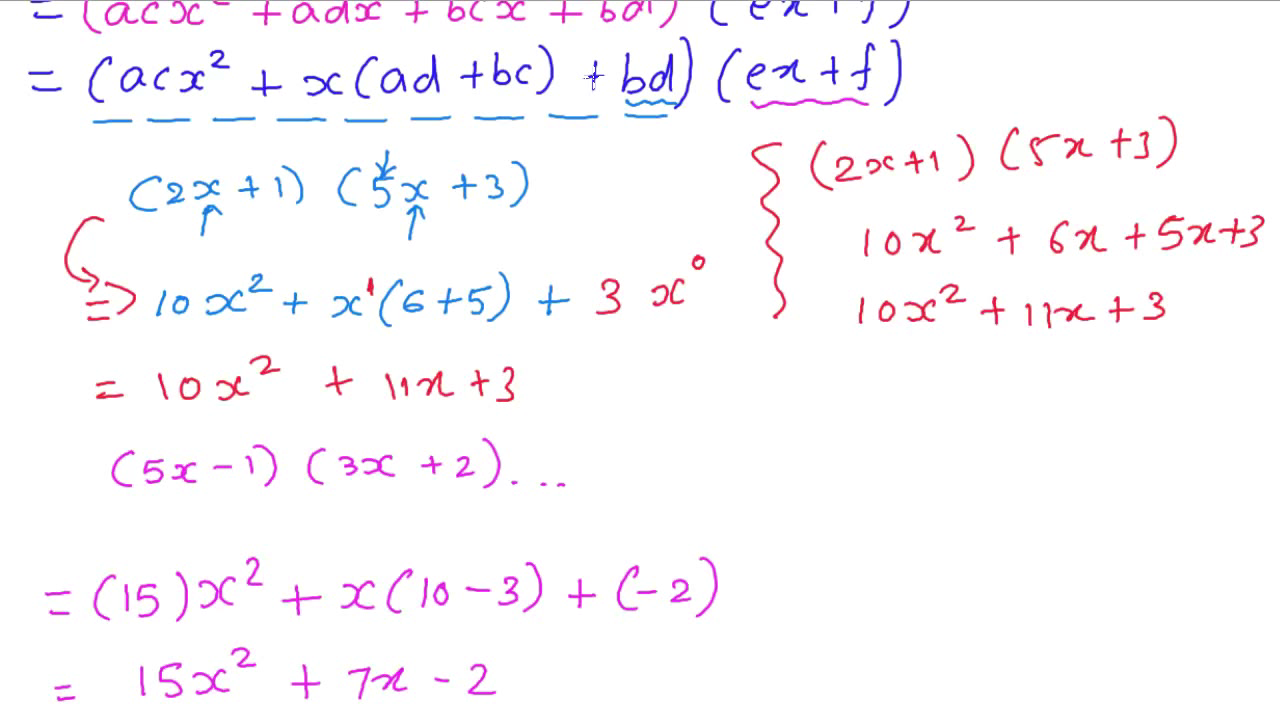 = (acx² + adx + bcx + bd) (ex + f)
= (acx² + x(ad + bc) + bd) (ex + f)
(2x + 1) (5x + 3)
=> 10x² + x¹(6 + 5) + 3 x⁰
= 10x² + 11x + 3
(2x + 1) (5x + 3)
10x² + 6x + 5x + 3
10x² + 11x + 3
(5x - 1) (3x + 2). ...
= (15)x² + x(10 - 3) + (-2)
= 15x² + 7x - 2